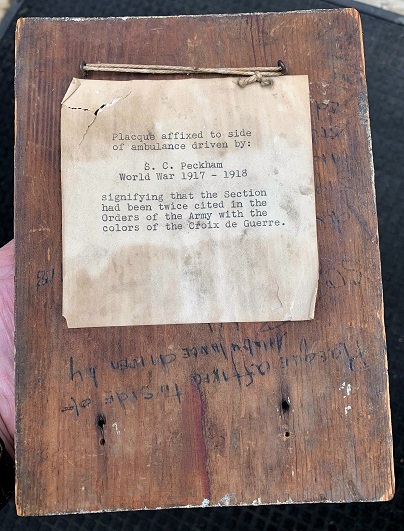 Placque affixed to side
of ambulance driven by:
S. C. Peckham
World War 1917 - 1918
signifying that the Section
had been twice cited in the
Orders of the Army with the
colors of the Croix de Guerre.
Placque affixed to side of
Ambulance driven by